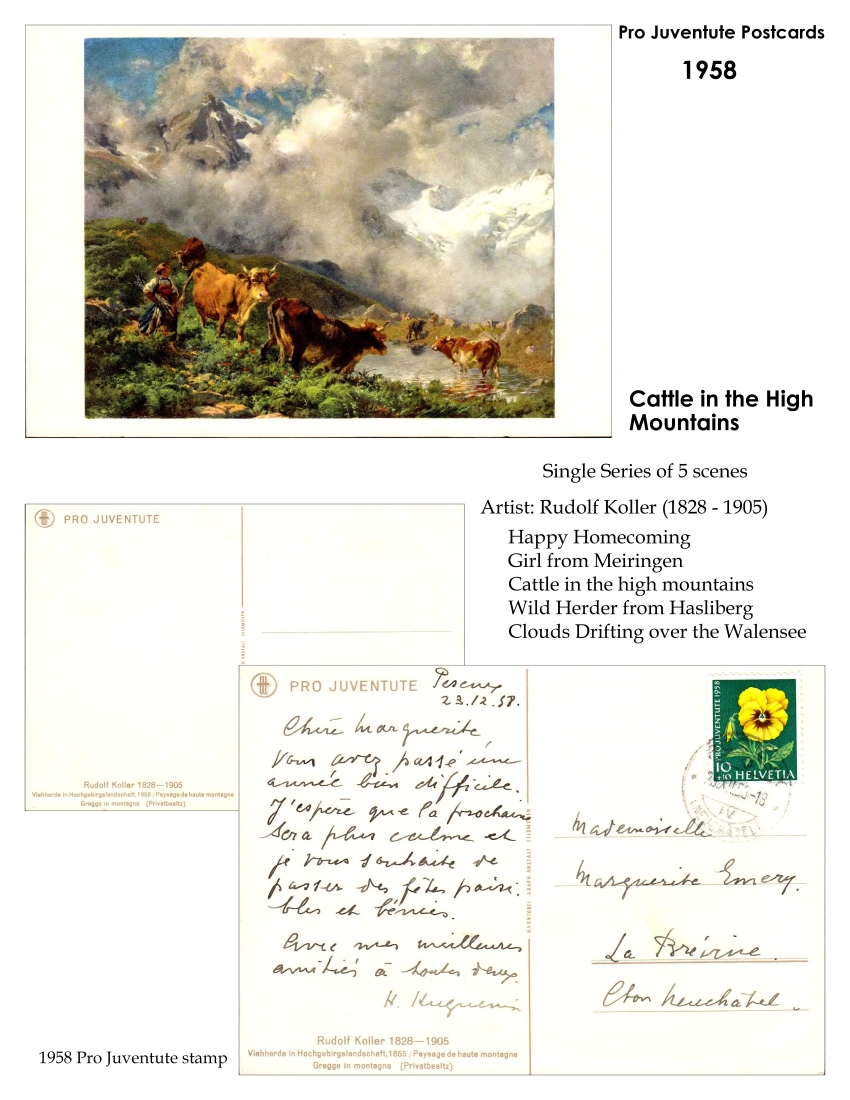 Pro Juventute Postcards
1958
Cattle in the High
Mountains
Single Series of 5 scenes
Artist: Rudolf Koller (1828 - 1905)
Happy Homecoming
Girl from Meiringen
Cattle in the high mountains
Wild Herder from Hasliberg
Clouds Drifting over the Walensee
PRO JUVENTUTE
Rudolf Koller 1828—1905
Viehherde in Hochgebirgslandschaft, 1855 / Paysage de haute montagne
Gregge in montagna (Privatbesitz)
PRO JUVENTUTE
Peseux
23.12.58.
Chère Marguerite
Vous avez passé une
année bien difficile.
J'espère que la prochaine
sera plus calme et
je vous souhaite de
passer des fêtes paisi-
bles et bénies.
Avec mes meilleures
amitiés à toutes deux.
H. Huguenin
Rudolf Koller 1828—1905
Viehherde in Hochgebirgslandschaft, 1855 / Paysage de haute montagne
Gregge in montagna (Privatbesitz)
PRO JUVENTUTE 1958
10
+10 HELVETIA
Mademoiselle
Marguerite Emery.
La Brévine.
Cton Neuchâtel.
1958 Pro Juventute stamp